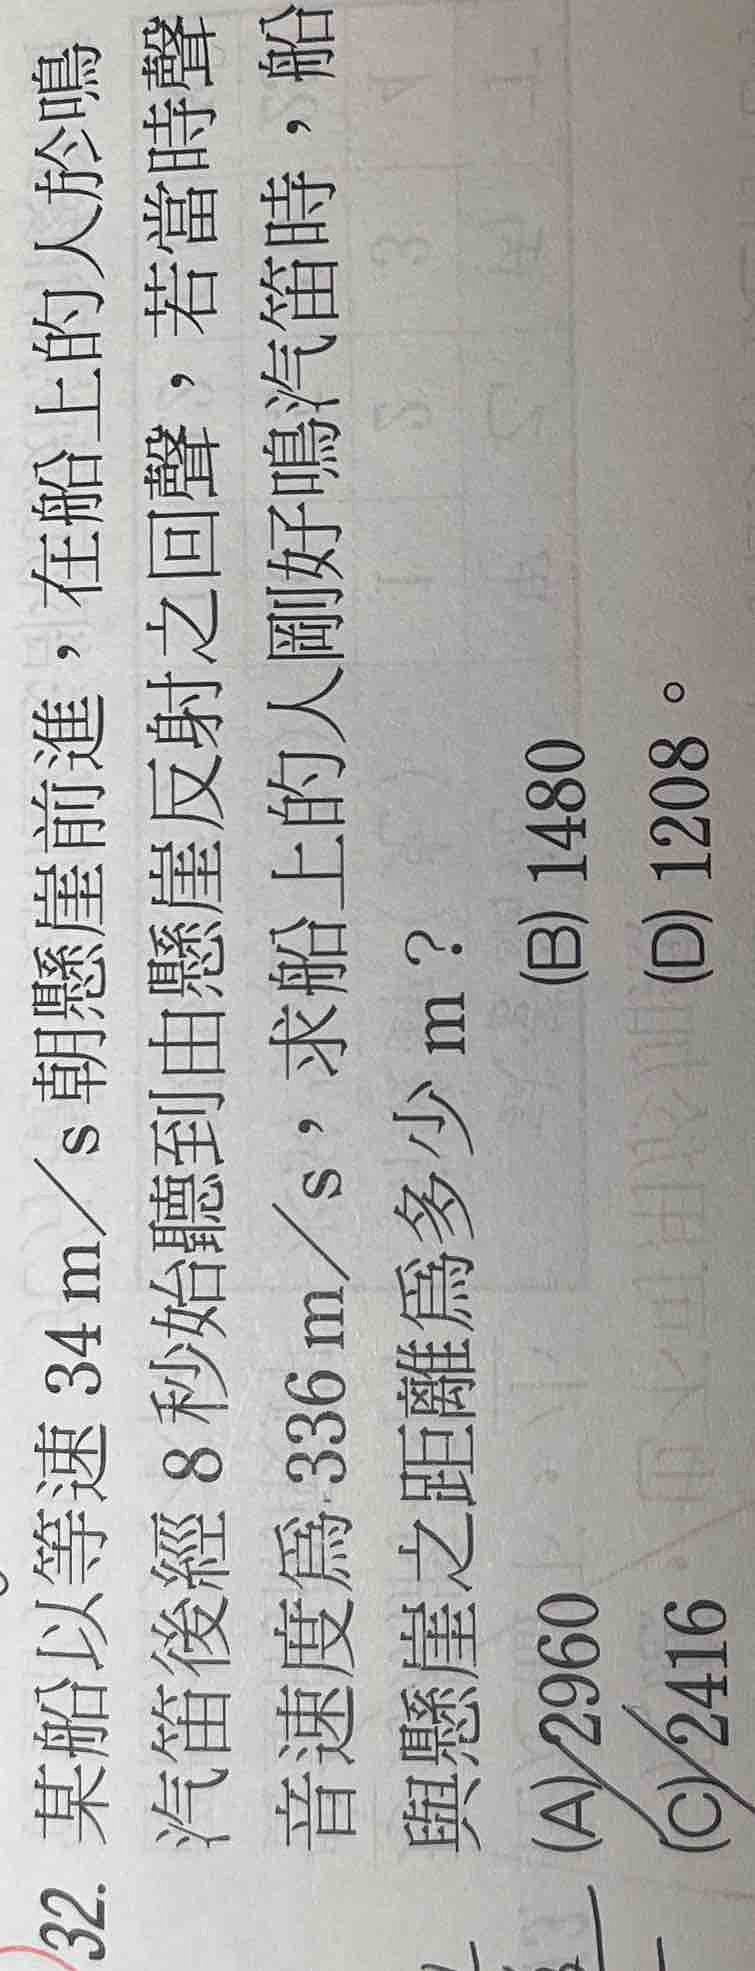 32. 某船以等速 34 m／s 朝懸崖前進，在船上的人於鳴
汽笛後經 8 秒始聽到由懸崖反射之回聲，若當時聲
音速度爲 336 m／s，求船上的人剛好鳴汽笛時，船
與懸崖之距離爲多少 m？
(A) 2960 (B) 1480
(C) 2416 (D) 1208。